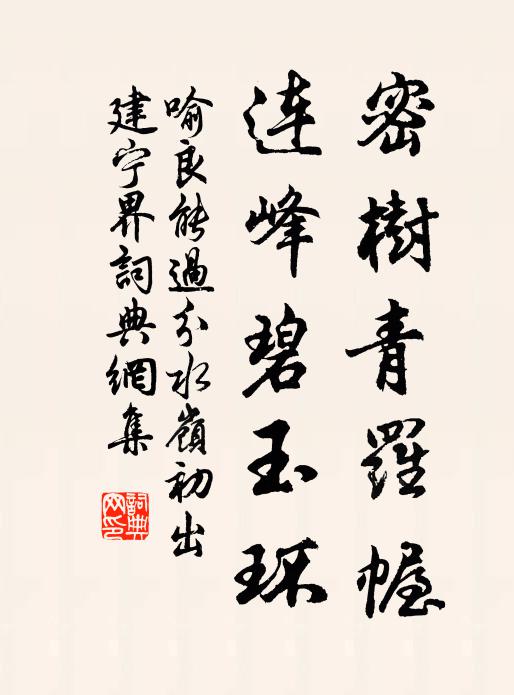 密樹青羅幄
連峰碧玉環
喻良能過分水嶺初出
建宁界詞典網集
詞典
网印